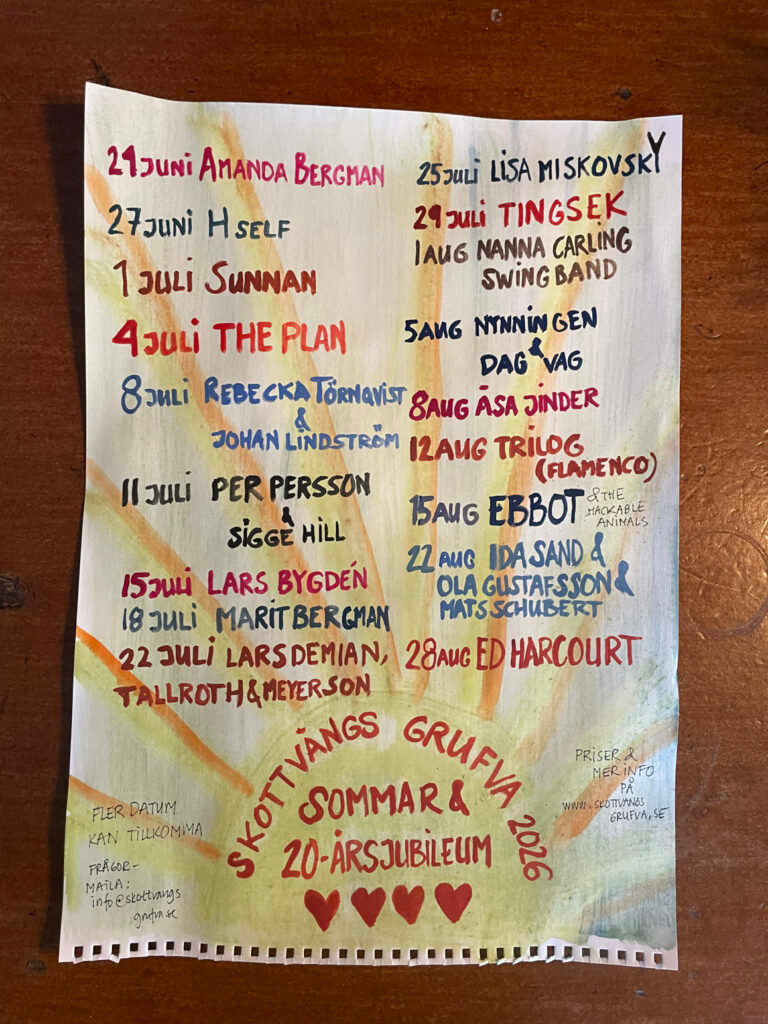 24 JUNI AMANDA BERGMAN
27 JUNI H SELF
1 JULI SUNNAN
4 JULI THE PLAN
8 JULI REBECKA TÖRNQVIST
&
JOHAN LINDSTRÖM
11 JULI PER PERSSON
&
SIGGE HILL
15 JULI LARS BYGDÉN
18 JULI MARIT BERGMAN
22 JULI LARS DEMIAN,
TALLROTH & MEYERSON
25 JULI LISA MISKOVSKY
29 JULI TINGSEK
1 AUG NANNA CARLING
SWING BAND
5 AUG NYNNINGEN
&
DAG VAG
8 AUG ÅSA JINDER
12 AUG TRILOG
(FLAMENCO)
15 AUG EBBOT & THE
HACKABLE
ANIMALS
22 AUG IDA SAND &
OLA GUSTAFSSON &
MATS SCHUBERT
28 AUG ED HARCOURT
SKOTTVÅNGS GRUFVA 2026
SOMMAR &
20-ÅRSJUBILEUM
FLER DATUM
KAN TILLKOMMA
FRÅGOR-
MAILA:
info@skottvangs
grufva.se
PRISER &
MER INFO
PÅ
WWW.SKOTTVANGS
GRUFVA.SE